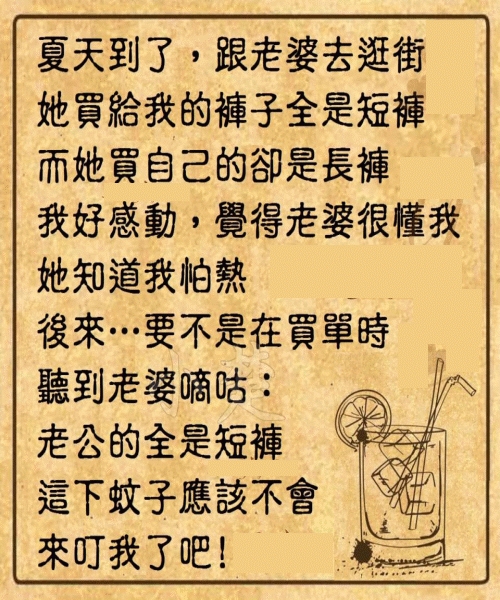 夏天到了，跟老婆去逛街
她買給我的褲子全是短褲
而她買自己的卻是長褲
我好感動，覺得老婆很懂我
她知道我怕熱
後來…要不是在買單時
聽到老婆嘀咕：
老公的全是短褲
這下蚊子應該不會
來叮我了吧！